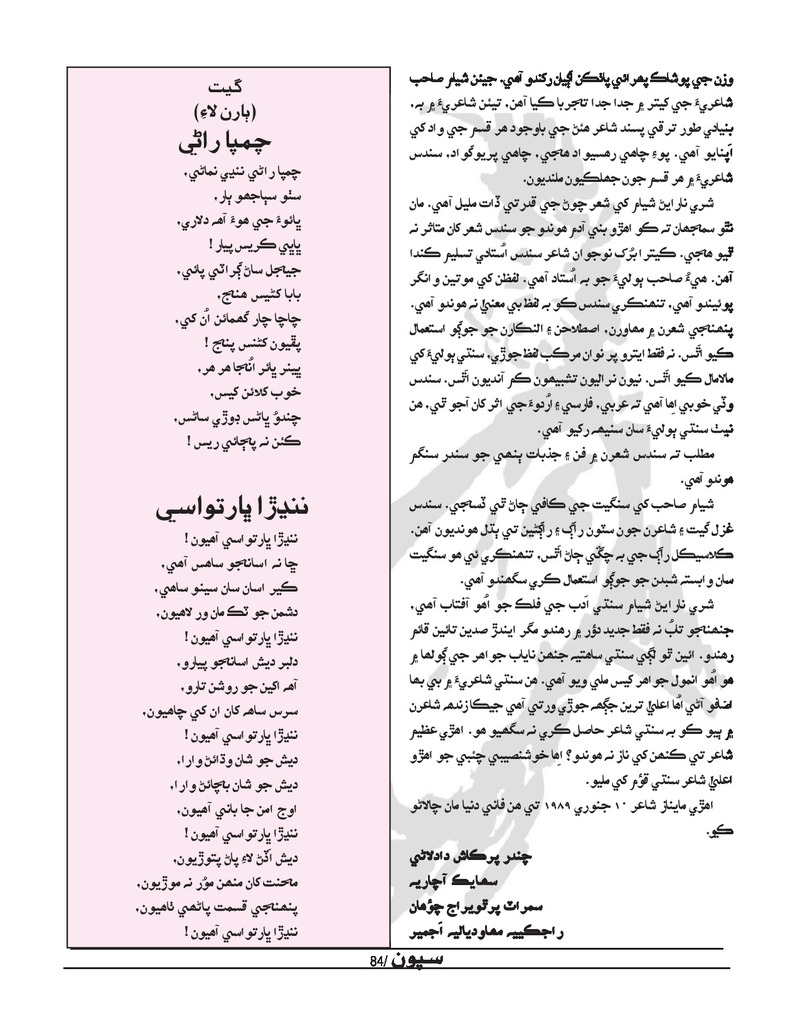 وزن جي پوشاڪ پھرائي پاٺڪن اڳيان رکندو آهي. جيئن شيام صاحب
شاعريءَ جي کيتر ۾ جدا جدا تجربا ڪيا آهن، تيئن شاعريءَ ۾ به،
بنيادي طور ترقي پسند شاعر هئڻ جي باوجود هر قسم جي واد کي
اپنايو آهي. پوءِ چاهي رهسيواد هجي، چاهي پريوگواد، سندس
شاعريءَ ۾ هر قسم جون جھلڪيون ملنديون.
شري نارايڻ شيام کي شعر چوڻ جي قدرتي ڏات مليل آهي. مان
نٿو سمجهان ته ڪو اهڙو بني آدم هوندو جو سندس شعر کان متاثر نه
ٿيو هجي. ڪيترا ئي نوجوان شاعر سندس اُستادي تسليم ڪندا
آهن. هيءُ صاحب ٻوليءَ جو به اُستاد آهي. لفظن کي موتين وانگر
پوئيندو آهي، تنھنڪري سندس ڪو به لفظ بي معنيٰ نه هوندو آهي.
پنھنجي شعرن ۾ مھاورن، اصطلاحن ۽ النڪارن جو جوڳو استعمال
ڪيو اٿس. نه فقط ايترو پر نوان مرڪب لفظ جوڙي، سنڌي ٻوليءَ کي
مالامال ڪيو اٿس. نيون نراليون تشبيھون ڪم آنديون اٿس. سندس
وڏي خوبي اِها آهي ته عربي، فارسي ۽ اُردوءَ جي اثر کان آجو ٿي، هن
نيٺ سنڌي ٻوليءَ سان سنيهه رکيو آهي.
مطلب ته سندس شعرن ۾ فن ۽ جذبات ٻنهي جو سندر سنگم
هوندو آهي.
شيام صاحب کي سنگيت جي ڪافي ڄاڻ ٿي ڏسجي. سندس
غزل گيت ۽ شاعرن جون سٽون راڳ ۽ راڳڻين تي ٻڌل هونديون آهن.
ڪلاسيڪل راڳ جي به چڱي ڄاڻ اٿس، تنھنڪري ئي هو سنگيت
سان وابسته شبدن جو جوڳو استعمال ڪري سگهندو آهي.
شري نارايڻ شيام سنڌي اَدب جي فلڪ جو اُهو آفتاب آهي،
جنھنجو تابُ نه فقط جديد دؤر ۾ رهندو مگر ايندڙ صدين تائين قائم
رهندو. ائين ٿو لڳي سنڌي ساهتيه جنھن ناياب جواهر جي ڳولها ۾
هو اُهو انمول جواهر کيس ملي ويو آهي. هن سنڌي شاعريءَ ۾ بي بھا
اضافو آڻي اُها اعليٰ ترين جڳهه جوڙي ورتي آهي جيڪا زنده شاعرن
۾ ٻيو ڪو به سنڌي شاعر حاصل ڪري نه سگهيو هو. اهڙي عظيم
شاعر تي ڪنھن کي ناز نه هوندو؟ اِها خوشنصيبي چئبي جو اهڙو
اعليٰ شاعر سنڌي قؤم کي مليو.
اهڙي مايناز شاعر ١٠ جنوري ١٩٨٩ تي هن فاني دنيا مان چالاڻو
ڪيو.
چندر پرڪاش دادلاڻي
سهايڪ آچاريه
سمراٽ پرٿويراج چؤهان
راجڪييه مھاوديالیه اَجمير
گيت
(ٻارن لاءِ)
چمپا راڻي
چمپا راڻي ننڍي نماڻي،
سٺو سٻاجهو ٻار،
ڀائوءَ جي هوءَ آهه دلاري،
ڀاڀي ڪريس پيار!
جيجل ساڻ ڳراٽي پائي،
بابا کڻيس هنج،
چاچا چار گهمائن اُن کي،
پڦيون کڻنس پنج!
ڀينر ڀائر اُنجا هر هر،
خوب کلائن کيس،
چندوُ ڀائس ڊوڙي ساڻس،
ڪئن نه پڄائي ريس!
ننڍڙا ڀارتواسي
ننڍڙا ڀارتواسي آهيون!
ڇا نه اسانجو ساهس آهي،
ڪير اسان سان سينو ساهي،
دشمن جو ٽڪ مان ور لاهيون،
ننڍڙا ڀارتواسي آهيون!
دلبر ديش اسانجو پيارو،
آهه اکين جو روشن تارو،
سرس ساهه کان ان کي چاهيون،
ننڍڙا ڀارتواسي آهيون!
ديش جو شان وڌائڻ وارا،
ديش جو شان بچائڻ وارا،
اوج امن جا باني آهيون،
ننڍڙا ڀارتواسي آهيون!
ديش اڏڻ لاءِ پاڻ پتوڙيون،
محنت کان منھن موُر نه موڙيون،
پنھنجي قسمت پاڻهي ٺاهيون،
ننڍڙا ڀارتواسي آهيون!
سپون /84